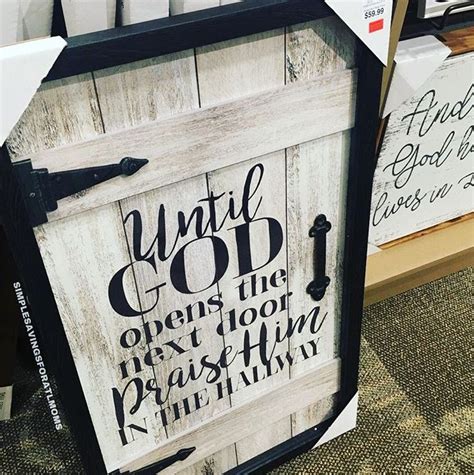 $59.99
Until
GOD
opens the
next door
praise Him
IN THE HALLWAY
And
God
lives in
SIMPLESAVINGSFORATLMOMS